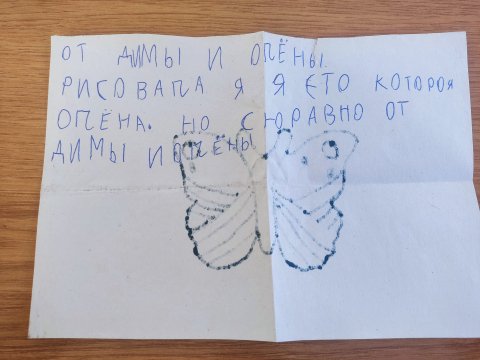 ОТ ДИМЫ И ОЛЁНЫ.
РИСОВАЛА Я Я ЄТО КОТОРОЯ
ОЛЁНА. НО СЮРАВНО ОТ
ДИМЫ И ОЛЁНЫ